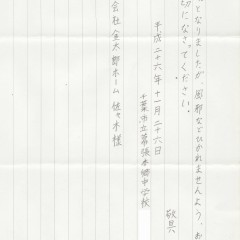 となりましたが、風邪などひかれませんよう、お
切になさってください。
敬具
平成二十六年十一月二十六日
千葉市立幕張本郷中学校
会社 金太郎ホーム 佐々木様